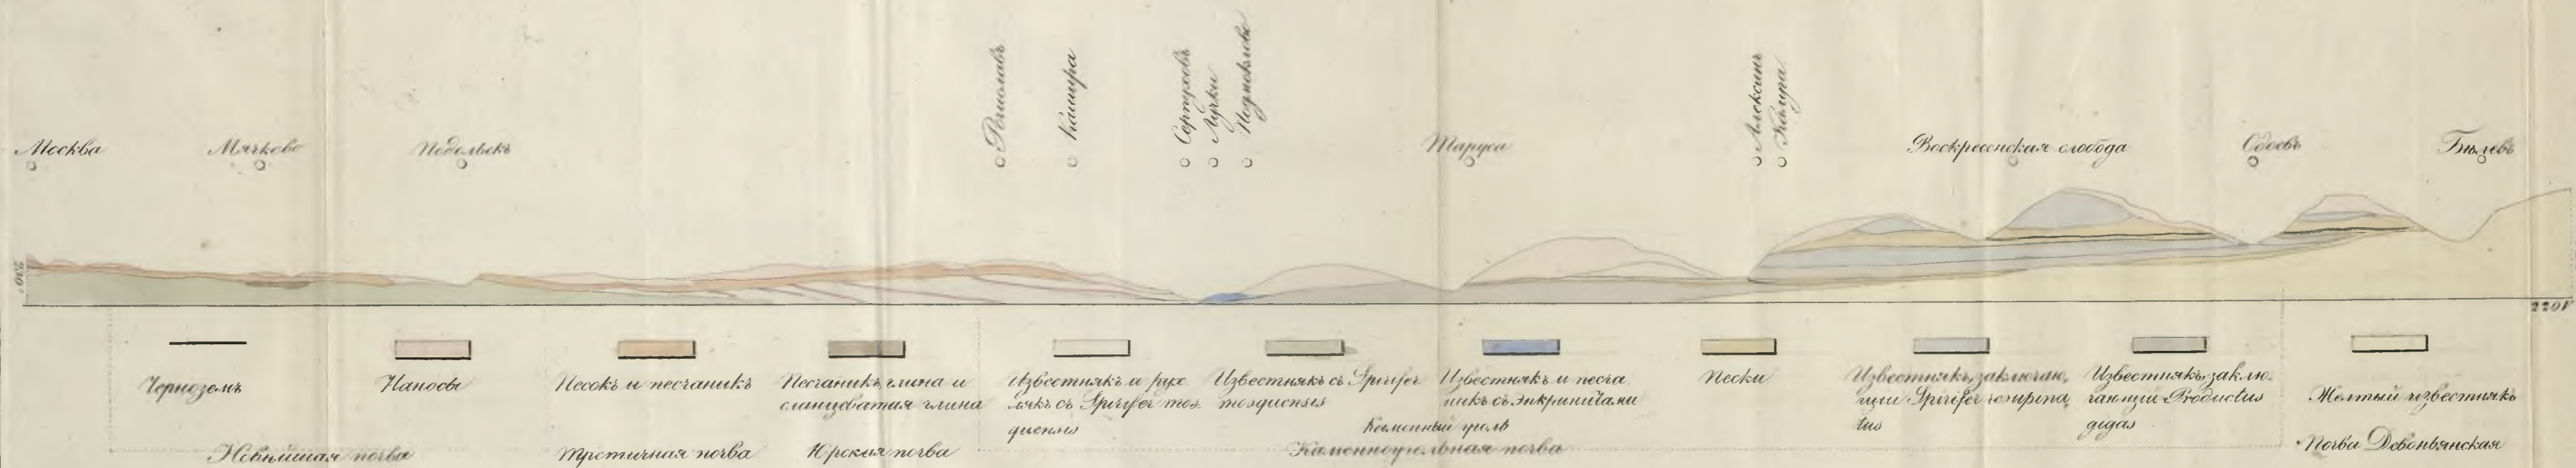 Москва
Мячково
Подольскъ
Рогиславъ
Кашира
Серпуховъ
Лужки
Таруса
Алексинъ
Калуга
Воскресенская слобода
Одоевъ
Бѣлевъ
220 F
Черноземъ
Наносы
Песокъ и песчаникъ
Песчаникъ, глина и
сланцеватая глина
Известнякъ и рух
лякъ съ Spirifer mos
quensis
Известнякъ съ Spirifer
mosquensis
Известнякъ и песча
никъ съ Энкринитами
Каменный уголь
Пески
Известнякъ, заключаю,
щій Spirifer resupina,
tus
Известнякъ, заклю-
чающій Productus
gigas
Желтый известнякъ
Новѣйшая почва
Третичная почва
Юрская почва
Каменноугольная почва
Почва Девоньянская